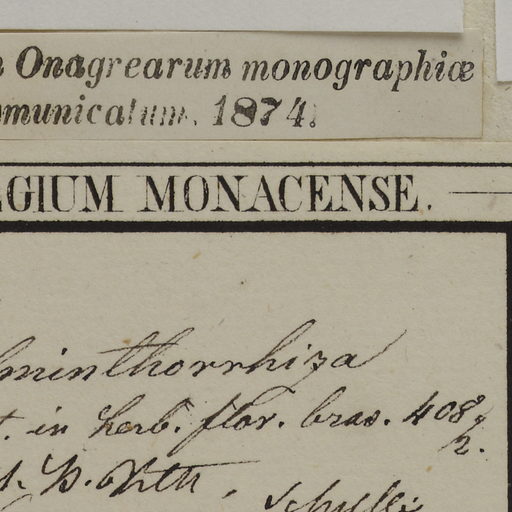 Onagrearum monographiæ
municatum. 1874.
GIUM MONACENSE.
minthorrhiza
in herb. flor. bras. 408,
2.